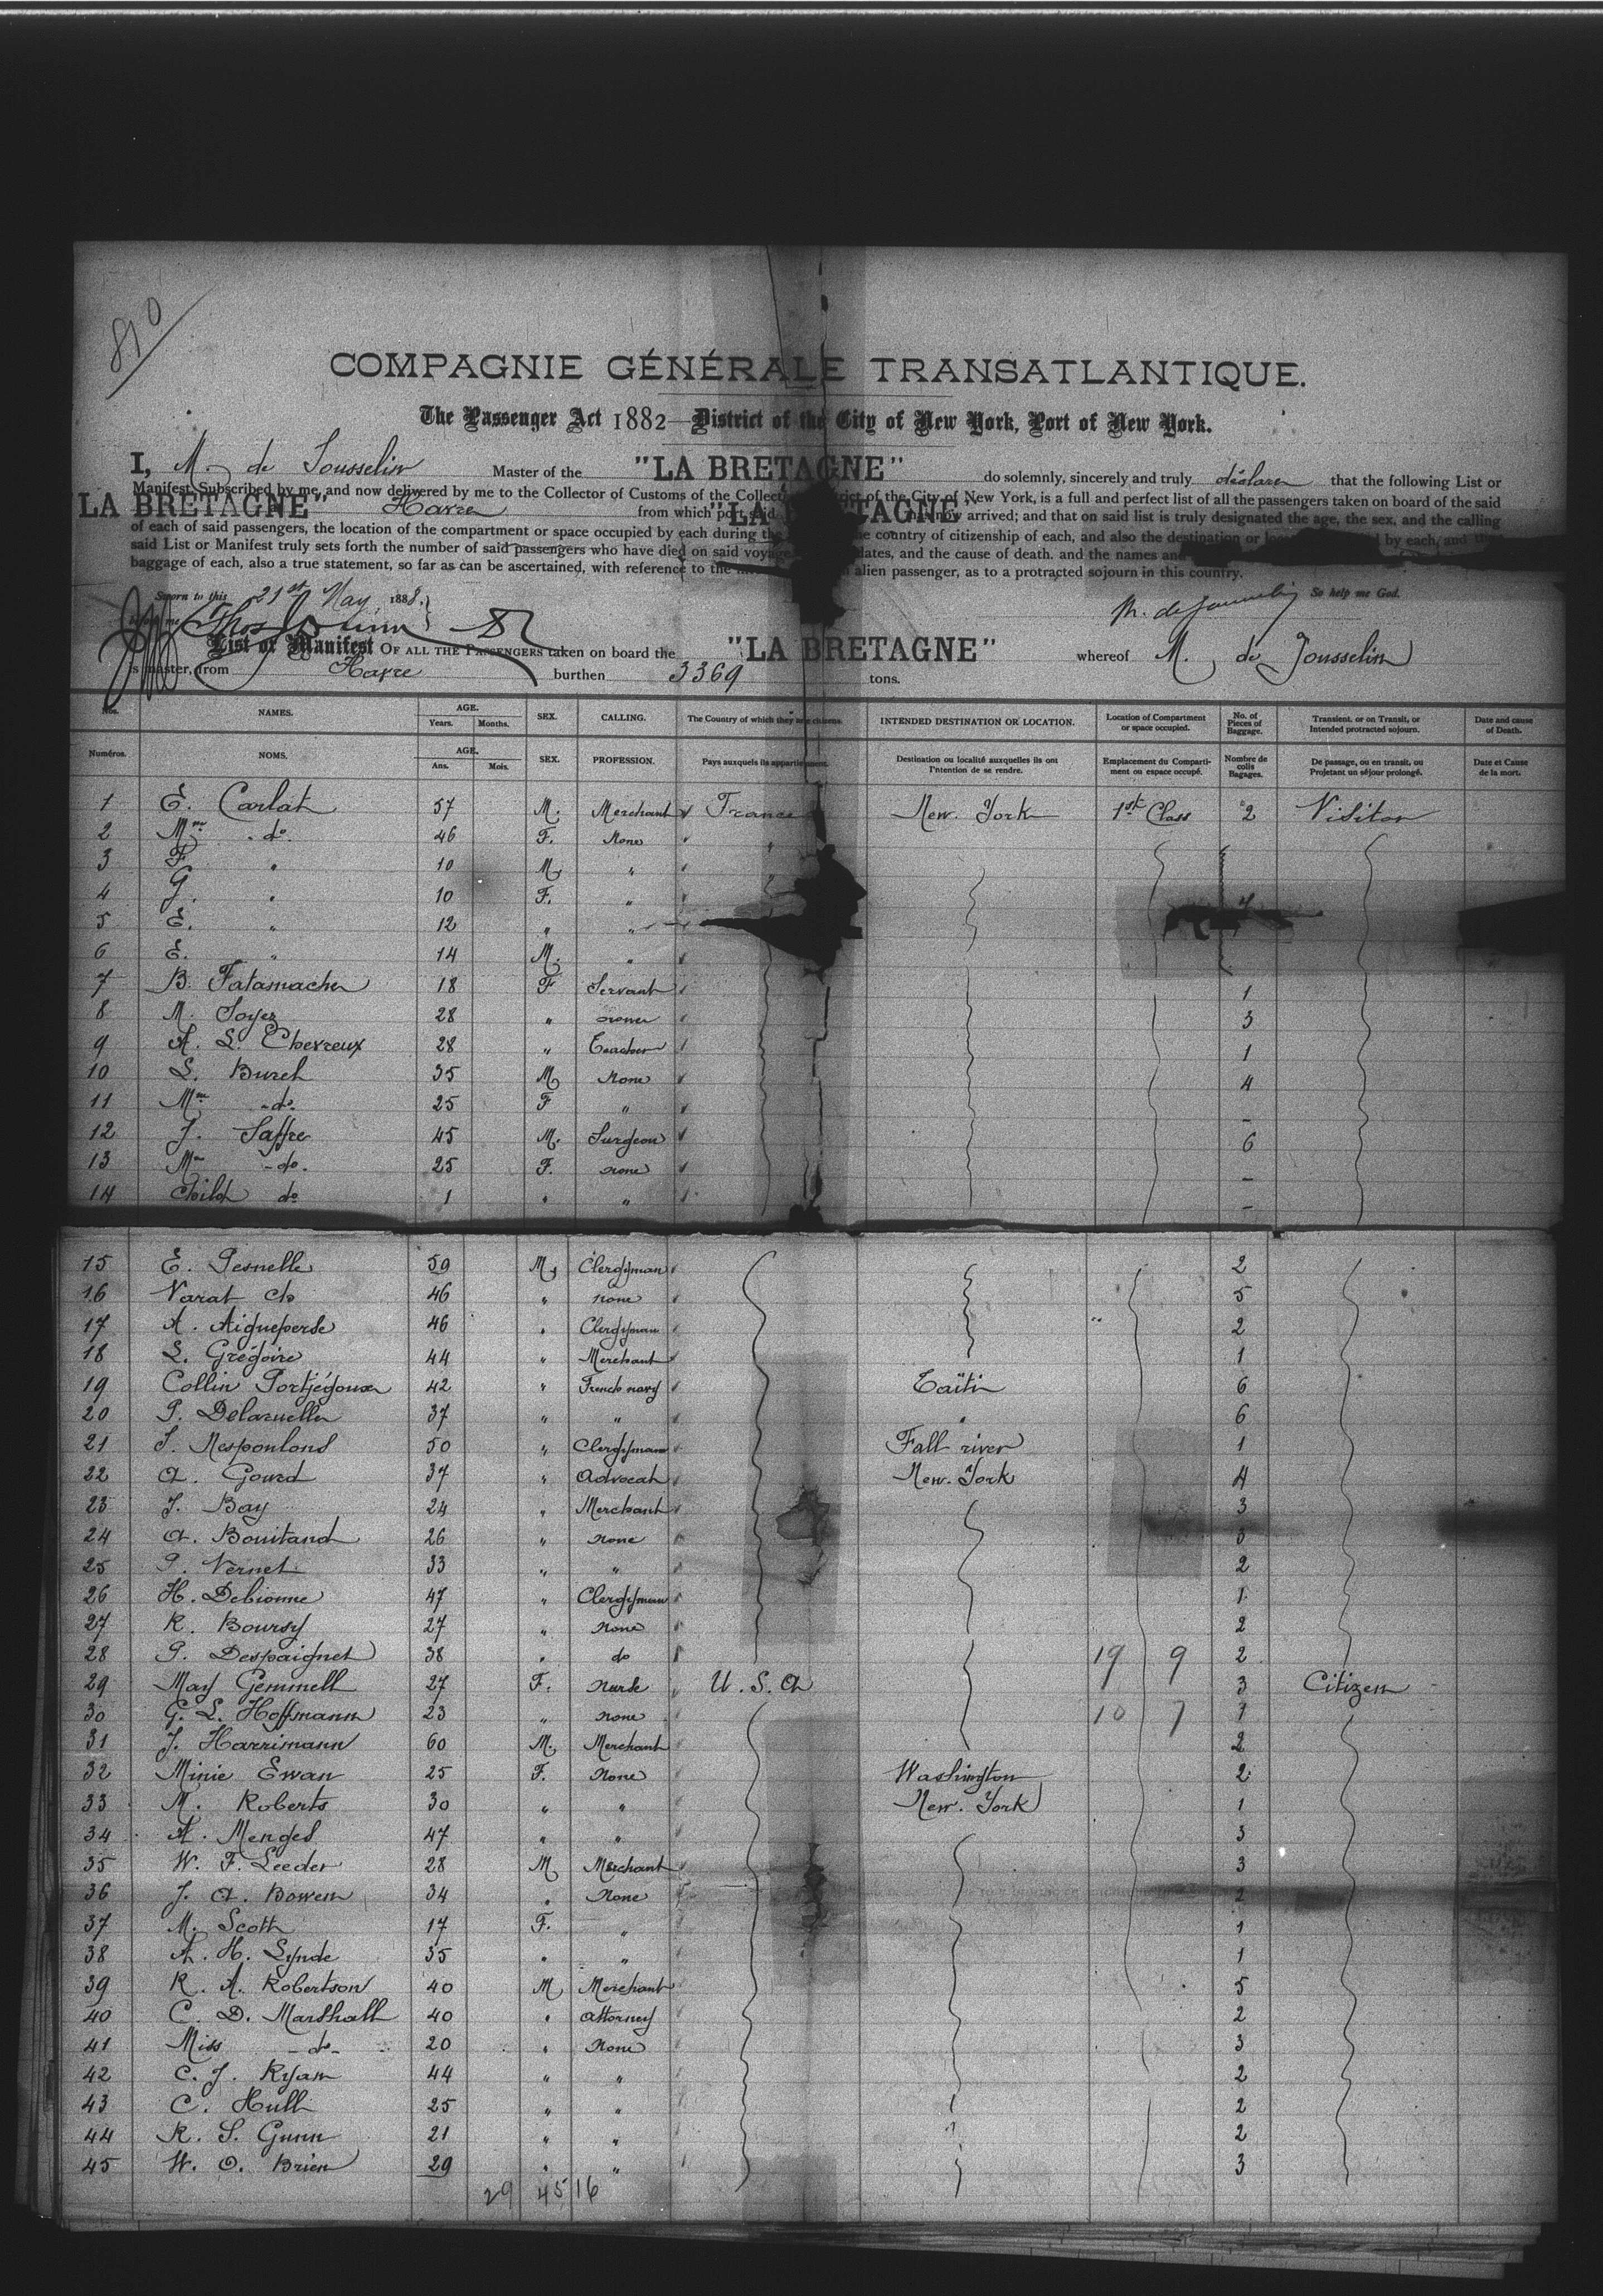 810
COMPAGNIE GÉNÉRALE TRANSATLANTIQUE.
The Passenger Act 1882—District of the City of New York, Port of New York.
I, M. de Jousselin Master of the "LA BRETAGNE" do solemnly, sincerely and truly declare that the following List or
Manifest Subscribed by me, and now delivered by me to the Collector of Customs of the Collection District of the City of New York, is a full and perfect list of all the passengers taken on board of the said
LA BRETAGNE" Havre from which port said "LA BRETAGNE" has now arrived; and that on said list is truly designated the age, the sex, and the calling
of each of said passengers, the location of the compartment or space occupied by each during the country of citizenship of each, and also the destination or by each, and that
said List or Manifest truly sets forth the number of said passengers who have died on said voyage dates, and the cause of death. and the names and
baggage of each, also a true statement, so far as can be ascertained, with reference to the alien passenger, as to a protracted sojourn in this country.
Sworn to this 21st May, 1888. M. de Jousselin So help me God.
before me
List or Manifest OF ALL THE PASSENGERS taken on board the "LA BRETAGNE" whereof M. de Jousselin
is master, from Havre burthen 3369 tons.
Nos. NAMES. AGE. Years. Months. SEX. CALLING. The Country of which they are citizens. INTENDED DESTINATION OR LOCATION. Location of Compartment or space occupied. No. of Pieces of Baggage. Transient, or on Transit, or Intended protracted sojourn. Date and cause of Death.
Numéros. NOMS. AGE. Ans. Mois. SEX. PROFESSION. Pays auxquels ils appartiennent. Destination ou localité auxquelles ils ont l'intention de se rendre. Emplacement du Compartiment ou espace occupé. Nombre de colis Bagages. De passage, ou en transit, ou Projetant un séjour prolongé. Date et Cause de la mort.
1 E. Carlat 57 M. Merchant France New. York 1st Class 2 Visitor
2 Mme do. 46 F. None "
3 F. " 10 M. "
4 G. " 10 F. "
5 E. " 12 " "
6 E. " 14 M. "
7 B. Fatasmacher 18 F Servant 1
8 M. Soyez 28 " 3
9 A. L. Chevreux 28 " Teacher 1
10 L. Burch 35 M None 4
11 Mme do. 25 F " -
12 J. Saffre 45 M. Surgeon 6
13 Mme do. 25 F. none -
14 Child do 1 " " -
15 E. Pesnelle 59 M. Clergyman 2
16 Varat Ch 46 " none 5
17 A. Aigueperse 46 " Clergyman 2
18 L. Grégoire 44 " Merchant 1
19 Collin Portjégoux 42 " French navy Taïti 6
20 P. Delaruelle 37 " " " 6
21 J. Nespoulous 50 " Clergyman Fall river 1
22 A. Gourd 37 " Advocat New. York 4
23 J. Bay 24 " Merchant 3
24 A. Bouitand 26 " none 3
25 P. Vernet 33 " " 2
26 H. Debionne 47 " Clergyman 1
27 R. Boursy 27 " None 2
28 P. Despaignet 38 " do 19 9 2
29 May Gemmell 27 F. Nurse U. S. A 3 Citizen
30 G. L. Hoffmann 23 " none 10 7 1
31 J. Harrimann 60 M. Merchant 2
32 Minie Ewan 25 F. None Washington 2
33 M. Roberts 30 " " New. York 1
34 A. Menges 47 " " 3
35 W. F. Leeder 28 M Merchant 3
36 J. A. Bowen 34 " None 2
37 M. Scott 17 F. " 1
38 A. H. Lynde 35 " " 1
39 R. A. Robertson 40 M Merchant 5
40 C. D. Marshall 40 " Attorney 2
41 Miss do 20 " None 3
42 C. J. Ryan 44 " " 2
43 C. Hull 25 " " 2
44 R. S. Gunn 21 " " 2
45 W. O. Brien 29 " " 3
29 45 16